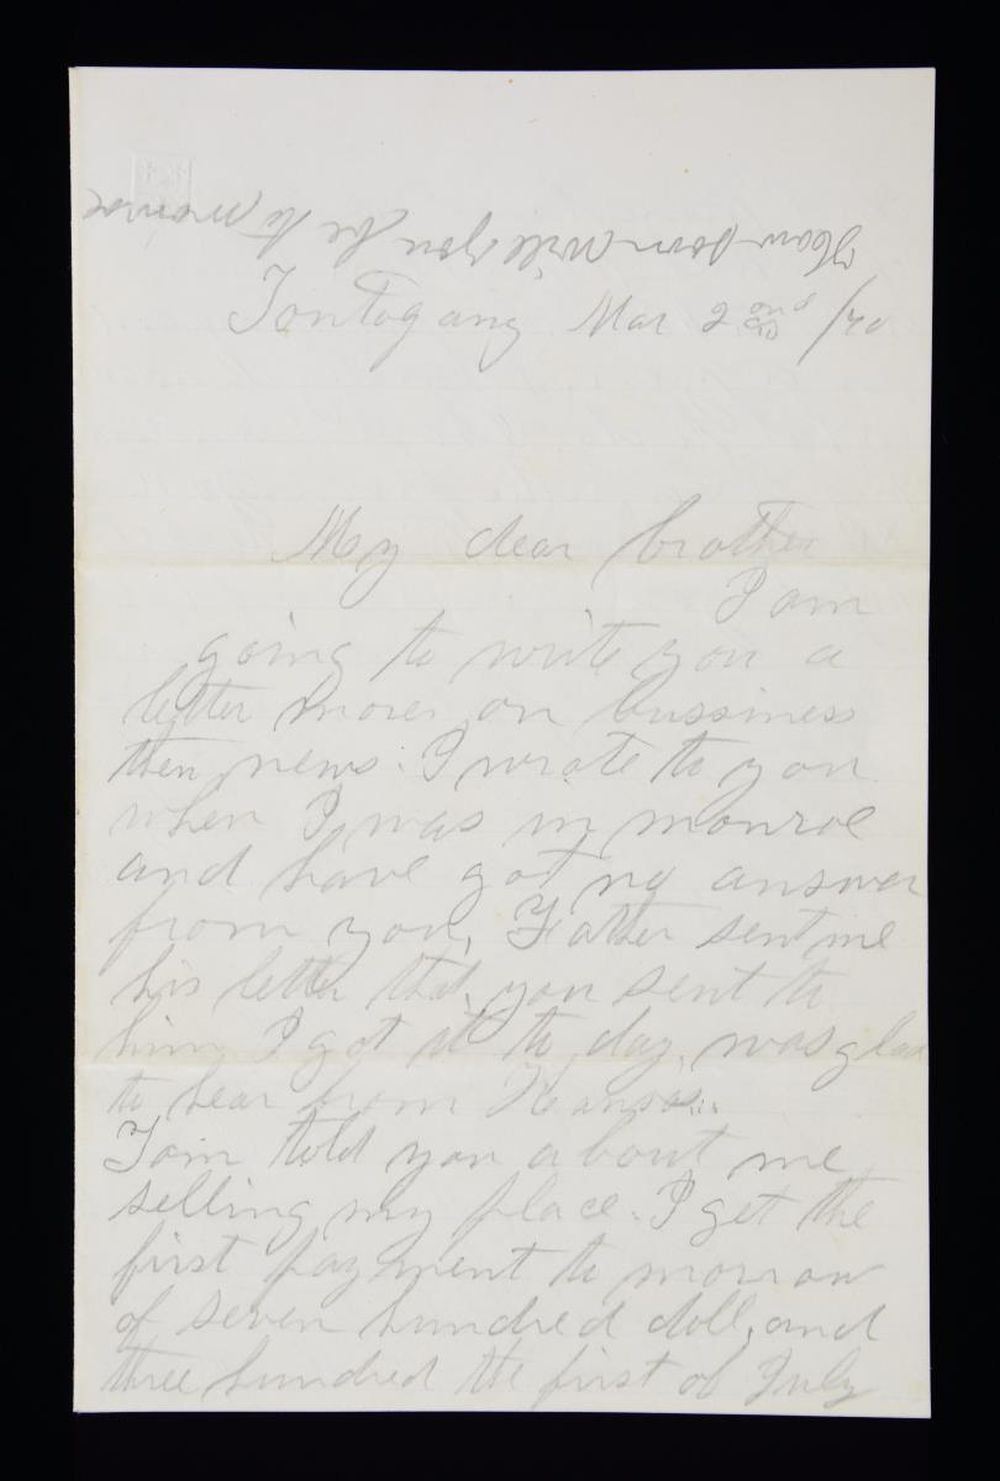 How soon will you be to monroe
Tontogany Mar 2ond /70
My dear brother
I am
going to write you a
letter more on bussiness
then news. I wrote to you
when I was in monroe
and have got no answer
from you, Father sent me
his letter that you sent to
him I got it to day, was glad
to hear from Kansas
Tom told you about me
selling my place. I get the
first payment to morrow
of seven hundred doll, and
three hundred the first of July